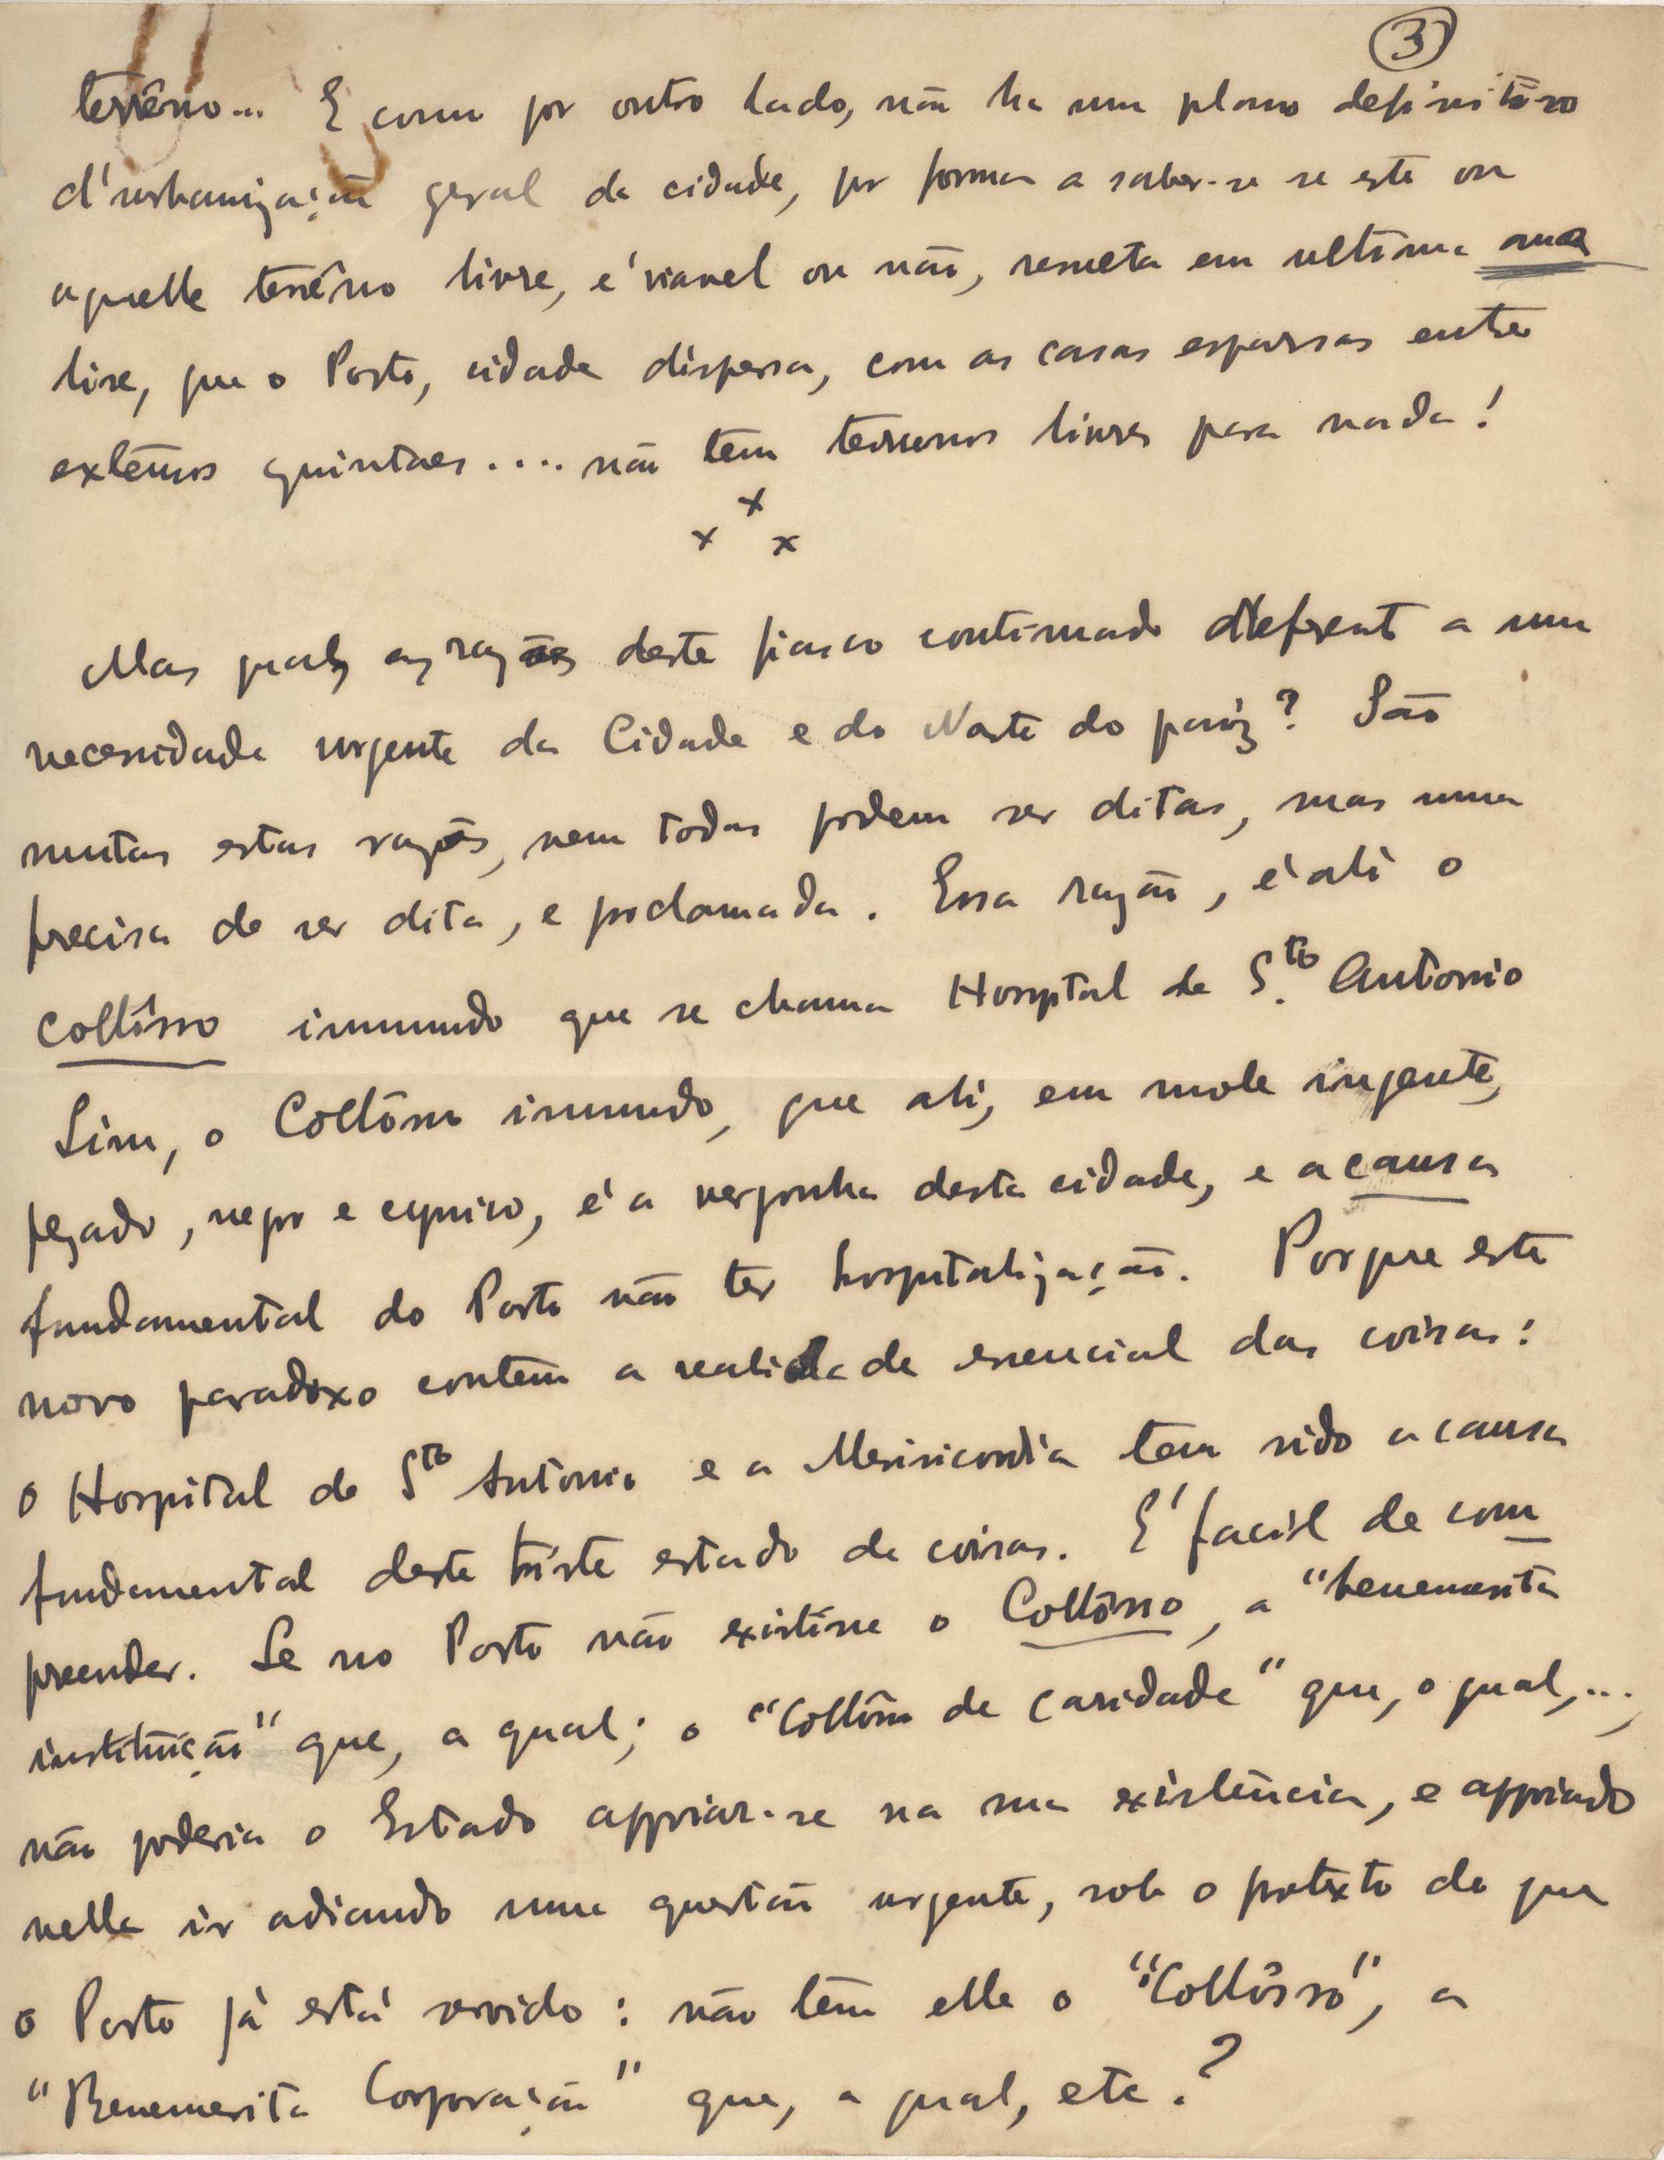 3
terrêno... E como por outro lado, não ha um plano definitivo
d'urbanização geral da cidade, por forma a saber-se se este ou
aquelle terrêno livre, é viavel ou não, resulta em ultima ana
lise, que o Porto, cidade dispersa, com as casas esparsas entre
extensos quintaes.... não tem terrenos livres para nada!
x x x
Mas quaes as razões deste fiasco continuado defrente a uma
necessidade urgente da Cidade e do Norte do paiz? São
muitas estas razões, nem todas podem ser ditas, mas uma
precisa de ser dita, e proclamada. Essa razão, é ali o
Collôsso immundo que se chama Hospital de S.to Antonio
Sim, o Collôsso immundo, que ali, em mole ingente,
pezado, negro e cynico, é a vergonha desta cidade, e a causa
fundamental do Porto não ter hospitalização. Porque este
novo paradoxo contem a realidade essencial das coisas:
O Hospital de Sto Antonio e a Misericordia tem sido a causa
fundamental deste triste estado de coisas. E' facil de com
preender. Se no Porto não existisse o Collôsso, a "benemerita
instituição" que, a qual; o "Collôsso de caridade" que, o qual,...,
não poderia o Estado appoiar-se na sua existência, e appoiado
nella ir adiando uma questão urgente, sob o pretexto de que
o Porto já está servido: não têm elle o "Collôsso", a
"Benemerita Corporação" que, a qual, etc.?